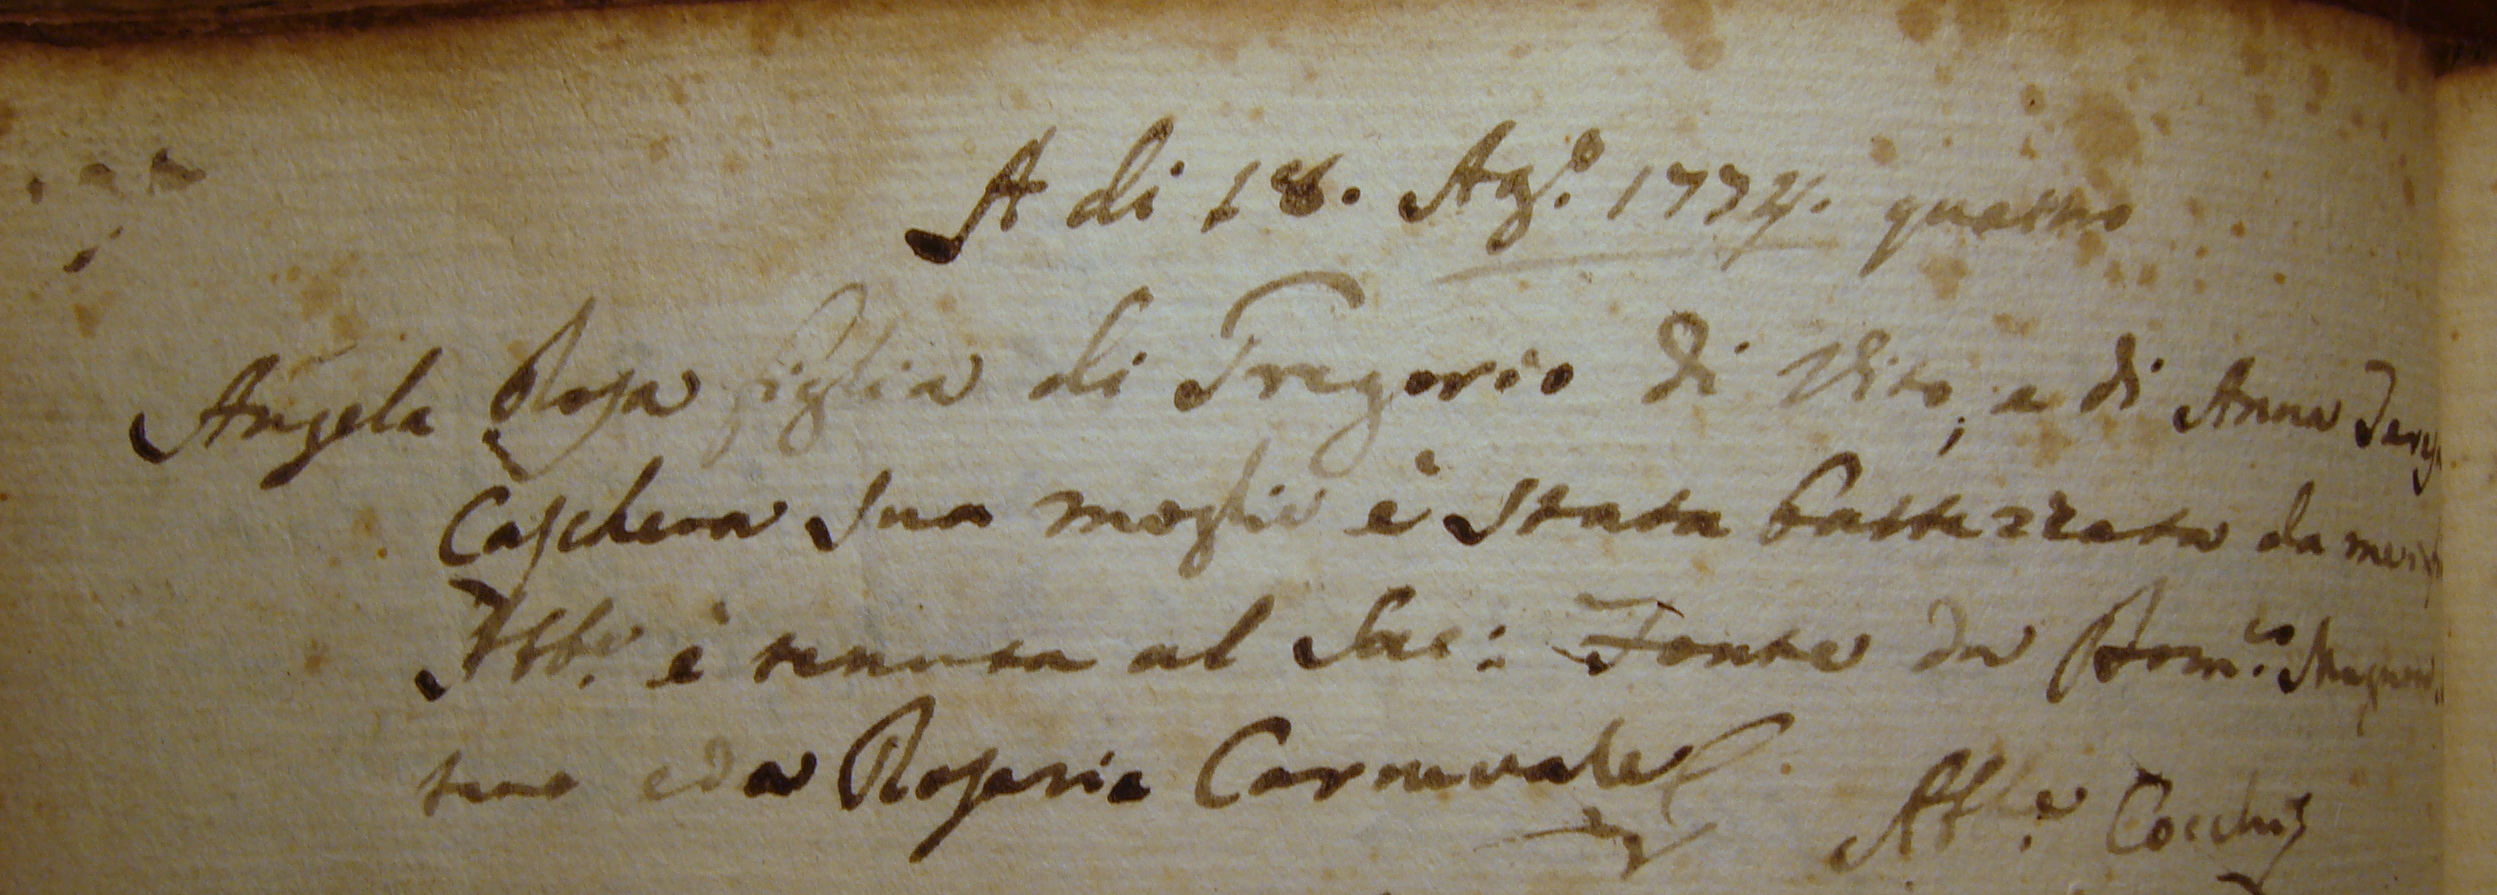 A di 18. Ag.o 1734. quattro
Angela Rosa figlia di Gregorio di Vito, e di Anna
Caschera sua moglie è stata battezzata da me
Abb.e è tenuta al Sac: Fonte da
eda Rosaria Carnevale
Abb.e Cocchi